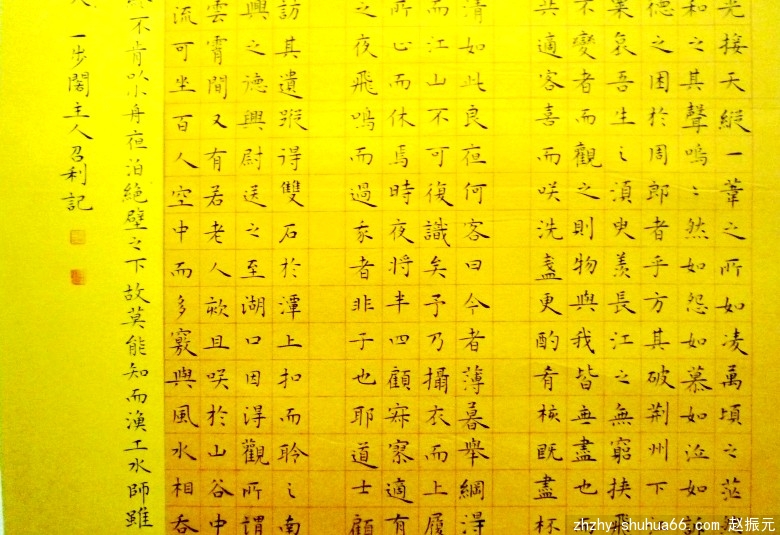 光接天縱一葦之所如凌萬頃之茫然
和之其聲嗚〻然如怨如慕如泣如訴
德之困於周郎者乎方其破荊州下
業哀吾生之須臾羨長江之無窮挾飛
不變者而觀之則物與我皆無盡也
共適客喜而咲洗盞更酌肴核既盡杯
清如此良夜何客曰今者薄暮舉網得
而江山不可復識矣予乃攝衣而上履
所心而休焉時夜將半四顧寂寥適有
之夜飛鳴而過我者非子也耶道士顧
訪其遺蹤得雙石於潭上扣而聆之南
興之德興尉送之至湖口因得觀所謂
雲霄間又有若老人欬且咲於山谷中
流可坐百人空中而多竅與風水相吞
不肯以小舟夜泊絕壁之下故莫能知而漁工水師雖
一步閣主人召利記
zhzhy.shuhua66.com 赵振元